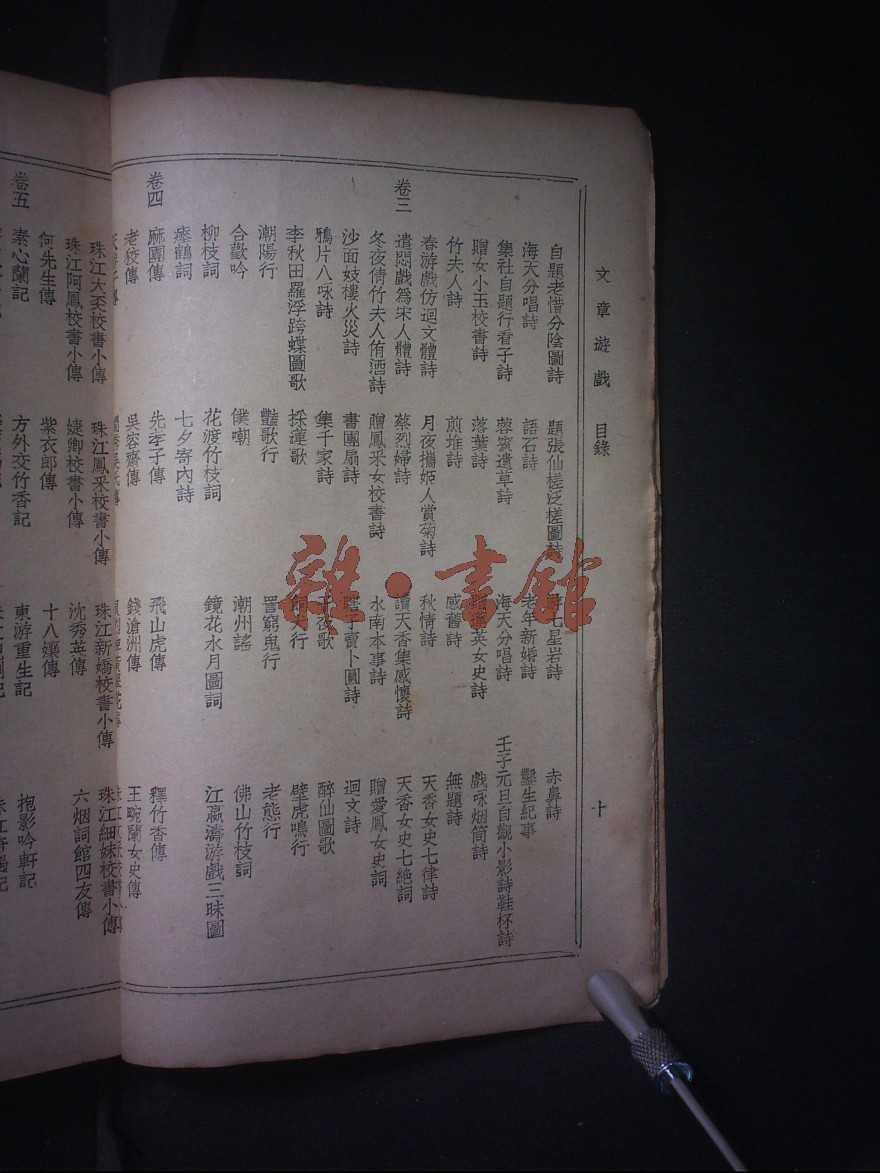 文章遊戲 目錄 十
自題老惜分陰圖詩 題張仙槎泛槎圖詩 游七星岩詩 赤鼻詩
海天分唱詩 語石詩 老年新婚詩 鑿生紀事
集社自題行看子詩 蓉賓遺草詩 海天分唱詩 壬子元旦自觀小影詩鞋杯詩
贈女小玉校書詩 落葉詩 英女史詩 戲咏烟筒詩
竹夫人詩 煎堆詩 感舊詩 無題詩
春游戲仿迴文體詩 月夜攜姬人賞菊詩 秋情詩 天香女史七律詩
卷三
遣悶戲爲宋人體詩 蔡烈婦詩 讀天香集感懷詩 天香女史七絕詞
冬夜倩竹夫人侑酒詩 贈鳳釆女校書詩 水南本事詩 贈愛鳳女史詞
沙面妓樓火災詩 書團扇詩 瞎子賣卜圓詩 迴文詩
鴉片八咏詩 集千家詩 子夜歌 醉仙圖歌
李秋田羅浮跨蝶圖歌 採蓮歌 行 壁虎鳴行
潮陽行 豔歌行 詈窮鬼行 老態行
合歡吟 僕嘲 潮州謠 佛山竹枝詞
柳枝詞 花渡竹枝詞 鏡花水月圖詞 江瀛濤游戲三昧圖
瘞鶴詞 七夕寄內詩
卷四
麻團傳 先孝子傳 飛山虎傳 釋竹香傳
老絞傳 吳容齋傳 錢滄洲傳 王畹蘭女史傳
珠江大奀校書小傳 珠江鳳釆校書小傳 珠江新嬌校書小傳 珠江細妹校書小傳
珠江阿鳳校書小傳 婕卿校書小傳 沈秀英傳 六烟詞館四友傳
何先生傳 紫衣郎傳 十八孃傳
卷五
素心蘭記 方外交竹香記 東游重生記 抱影吟軒記
雜·書館